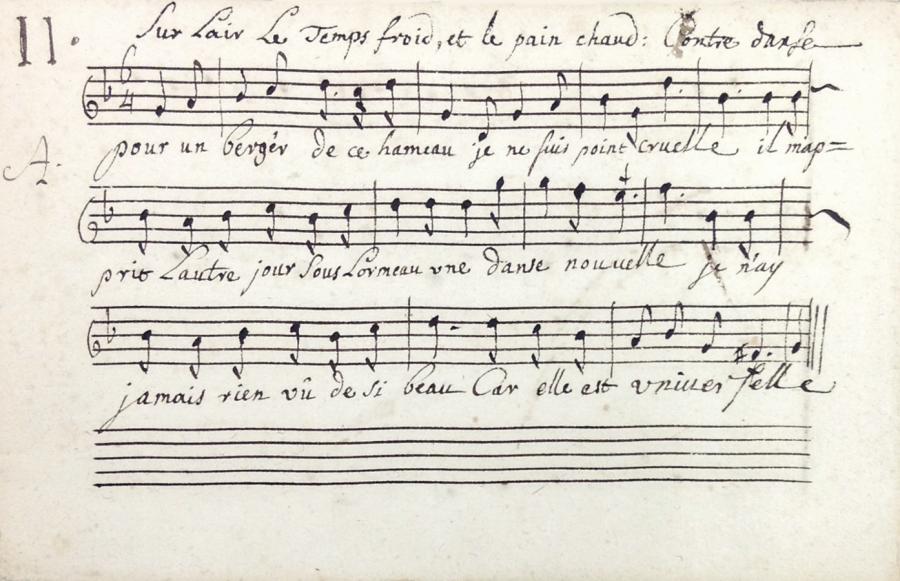 11.
Sur Lair Le Temps froid, et le pain chaud: Contre danse
6
4
A.
pour un berger de ce hameau je ne suis point cruelle il m'ap=
prit Lautre jour sous Lormeau vne danse nouuelle je n'ay
jamais rien vû de si beau Car elle est vniuerselle